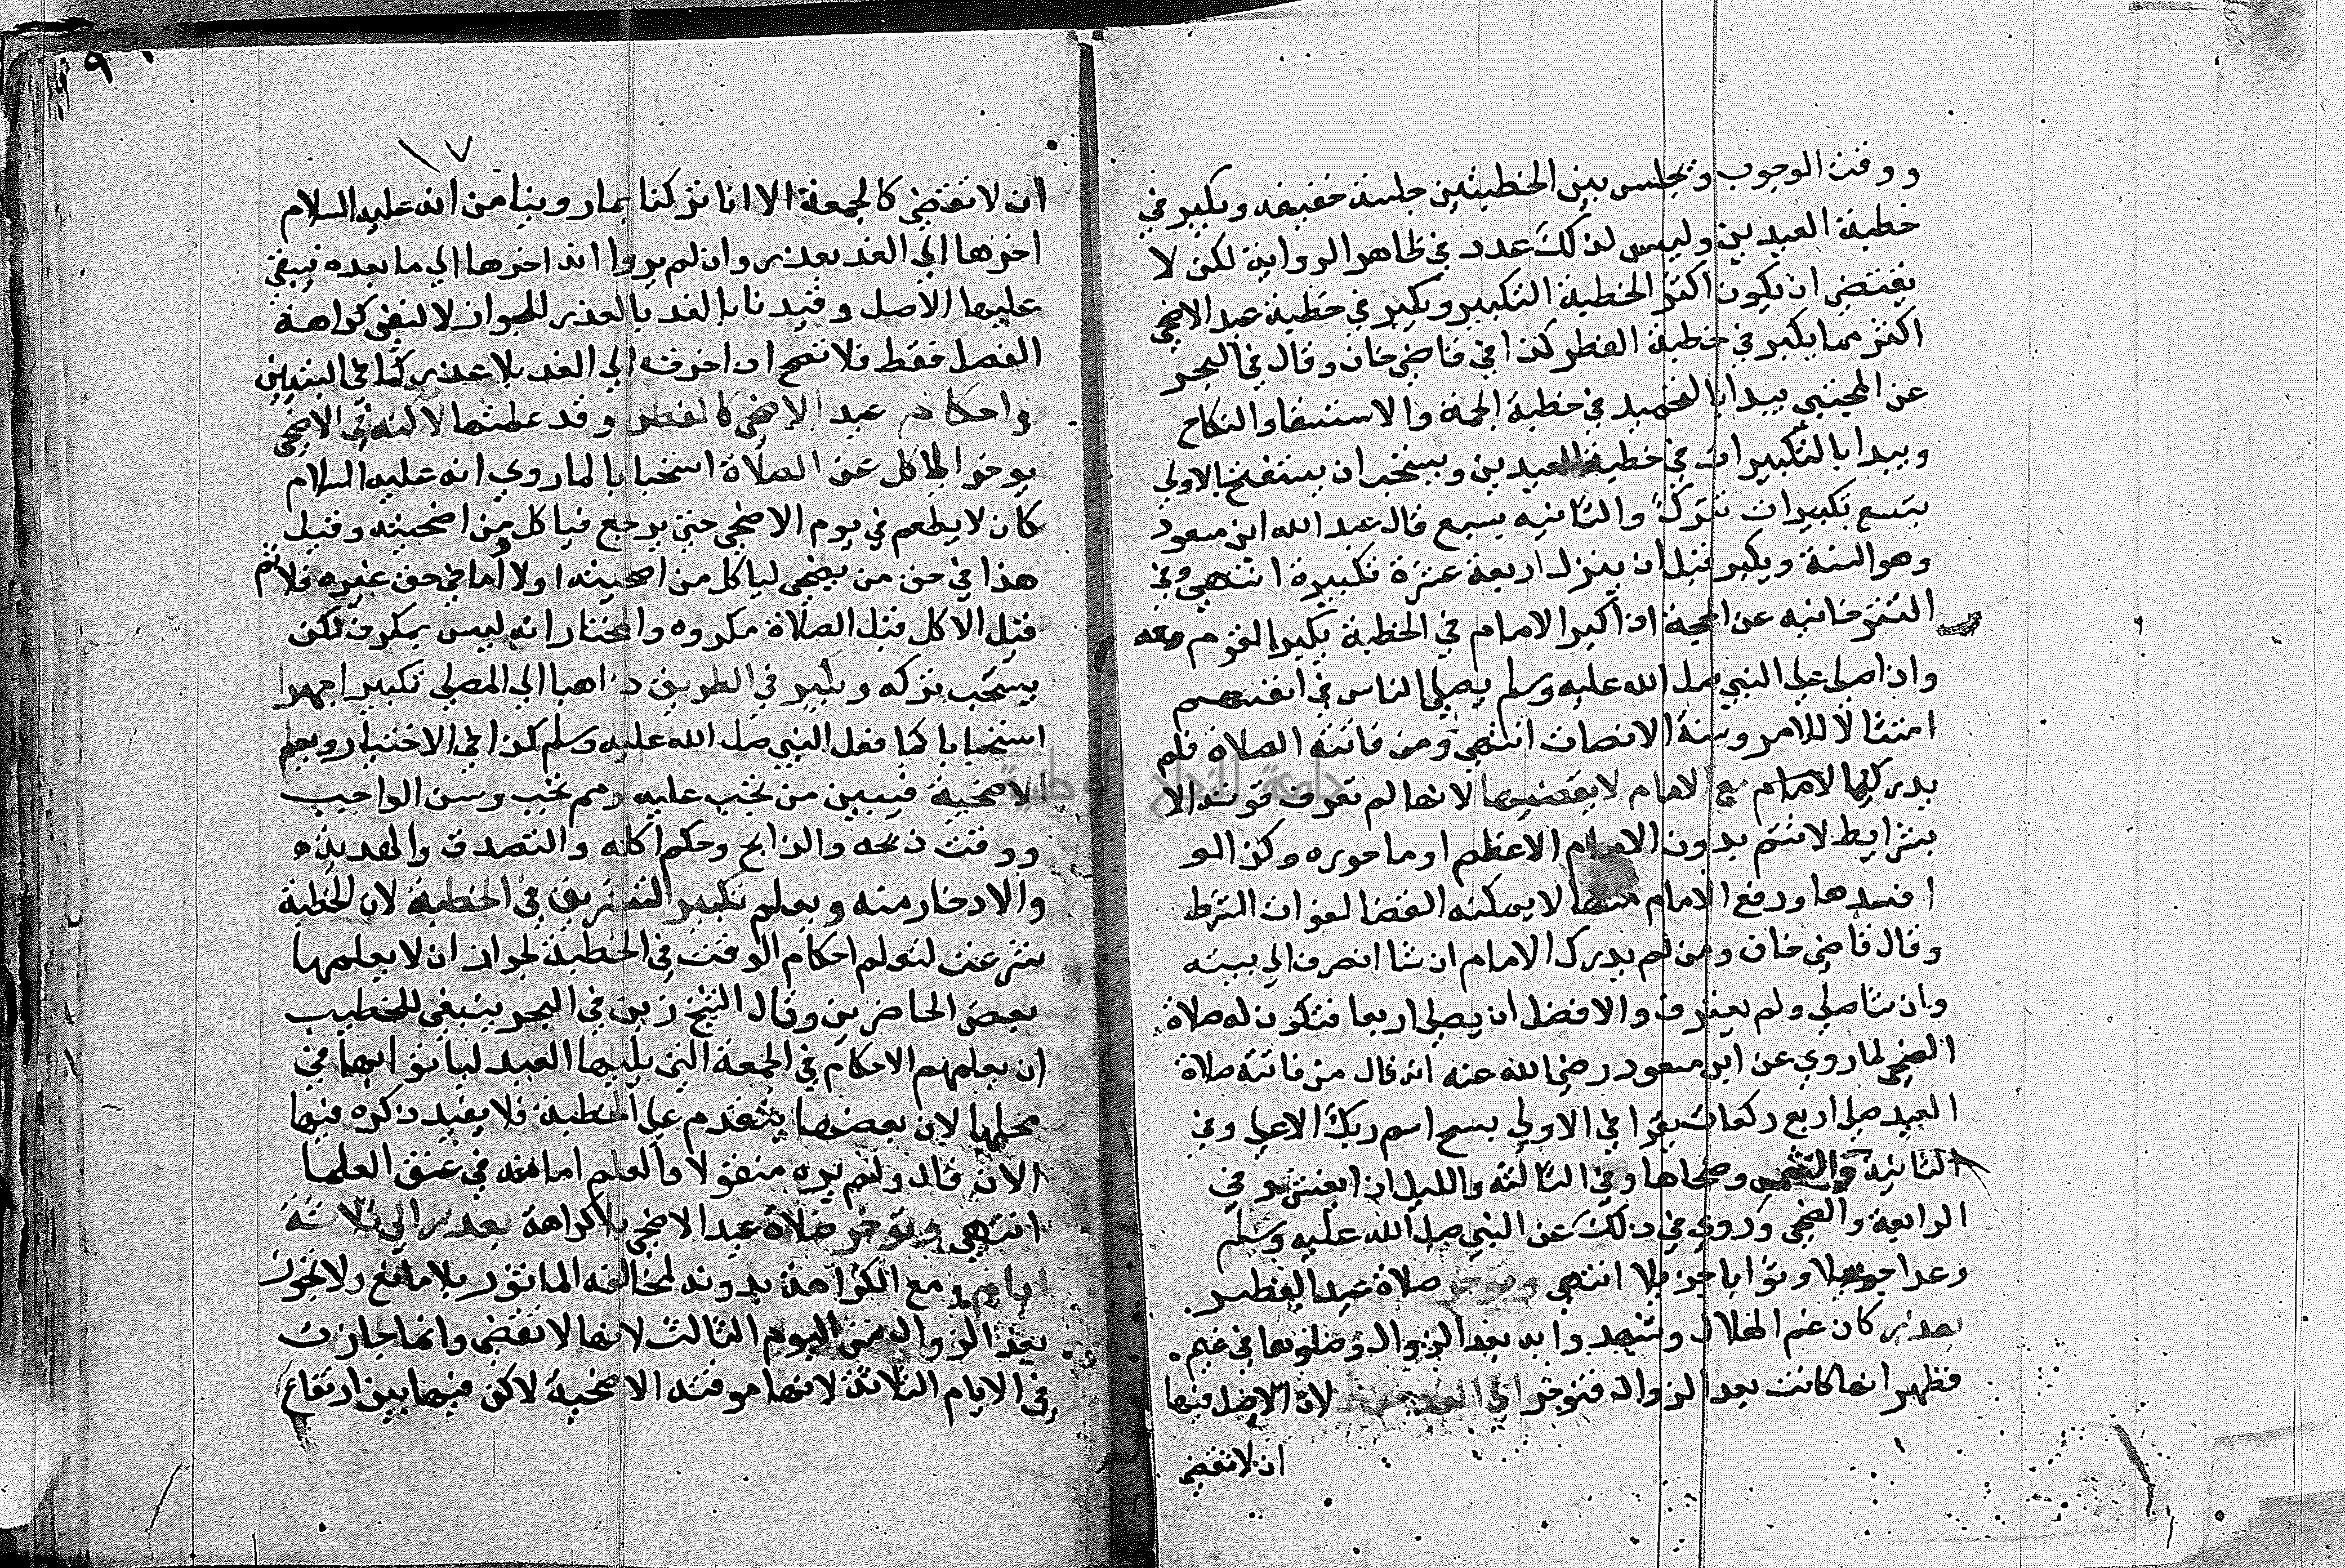 ووقت الوجوب ويجلس بين الخطبتين جلسة خفيفه ويكبر في
خطبة العيدين وليس لذلك عدد في ظاهر الرواية لكن لا
يقتضي ان يكون اكثر الخطبة التكبير ويكبر في خطبة عيد الاضحى
اكثر مما يكبر في خطبة الفطر كذا في قاضي خان وقال في البحر
عن المجتبي يبدا بالتحميد في خطبة الجمعة والاستسقا والنكاح
ويبدا بالتكبيرات في خطبة العيدين ويستحب ان يستفتح الاولي
بتسع تكبيرات تترًا والثانيه بسبع قال عبد الله ابن مسعود
وهو السنة ويكبر قبل ان ينزل اربعة عشرة تكبيرة انتهي وفي
التترخانيه عن الحجة اذا كبر الامام في الخطبة يكبر القوم معه
واذا صلي علي النبي صلى الله عليه وسلم يصلي الناس في انفسهم
امتثالا للامر وسنة الانصات انتهي ومن فاتته الصلاة فلم
يدركها مع الامام لا يقضيها لانها لم تعرف قربة الا
بشرايط لا تتم بدون الامام الاعظم او ماموره وكذا لو
افسدها ورفع الامام منها لا يمكنه القضا لفوات الشرط
وقال قاضي خان ومن لم يدرك الامام ان شا انصرف الي بيته
وان شا صلي ولم ينصرف والافضل ان يصلي اربعا فتكون له صلاة
الضحي لما روي عن ابن مسعود رضي الله عنه انه قال من فاتته صلاة
العيد صلي اربع ركعات يقرا في الاولي بسبح اسم ربك الاعلي وفي
الثانيه والشمس وضحاها وفي الثالثة والليل اذا يغشي وفي
الرابعة والضحي وروي في ذلك عن النبي صلى الله عليه وسلم
وعدا جميلا وثوابا جزيلا انتهي وتوخر صلاة عيد الفطر
بعذر كان غم الهلال وشهدوا به بعد الزوال او صلوها في غيم
فظهر انها كانت بعد الزوال فتوخر الي الغد لان الاصل فيها
ان لا تقضي
١٧
ان لا تقضي كالجمعة الا انا تركنا بما روينا من انه عليه السلام
اخرها الي الغد بعذر وان لم يروا انه اخرها الي ما بعده فبقي
عليها الاصل وقيدنا بالغد بالعذر للجواز لا لنفي كراهة
الفصل فقط فلا تصح ان اخرت الي الغد بلا عذر كما في التبيين
واحكام عيد الاضحي كالفطر وقد علمتها لا لكنه في الاضحى
يوخر الاكل عن الصلاة استحبابا لما روي انه عليه السلام
كان لا يطعم في يوم الاضحي حتي يرجع فياكل من اضحيته وقيل
هذا في حق من يضحي لياكل من اضحيته اولا اما في حق غيره فلا ثم
قيل الاكل قبل الصلاة مكروه والمختار انه ليس بمكروه لكن
يستحب تركه ويكبر في الطريق ذاهبا الي المصلي تكبيرا جهرا
استحبابا كما فعل النبي صلى الله عليه وسلم كذا في الاختيار ويعلم
الاضحية فيبين من تجب عليه ومم تجب وسن الواجب
ووقت ذبحه والذابح وحكم اكله والتصدق والهدية
والادخار منه ويعلم تكبير التشريق في الخطبة لان الخطبة
شرعت لتعلم احكام الوقت في الخطبة لجواز ان لا يعلمها
بعض الحاضرين وقال الشيخ زين في البحر ينبغي للخطيب
ان يعلمهم الاحكام في الجمعة التي يليها العيد لياتوا بها في
محلها لان بعضها يتقدم علي الخطبة فلا يفيد ذكره فيها
الان قال ولم يره منقولا والعلم امانة في عنق العلما
انتهي وتوخر صلاة عيد الاضحي بلا كراهة بعذر الي ثلاثة
ايام ومع الكراهة بدونه لمخالفة الماثور بلا مانع ولا تجوز
بعد الزوال من اليوم الثالث لانها لا تقضي وانما جازت
في الايام الثلاثة لانها موقته الاضحية لاكن فيها بين ارتفاع
جامعة النجاح الوطنية